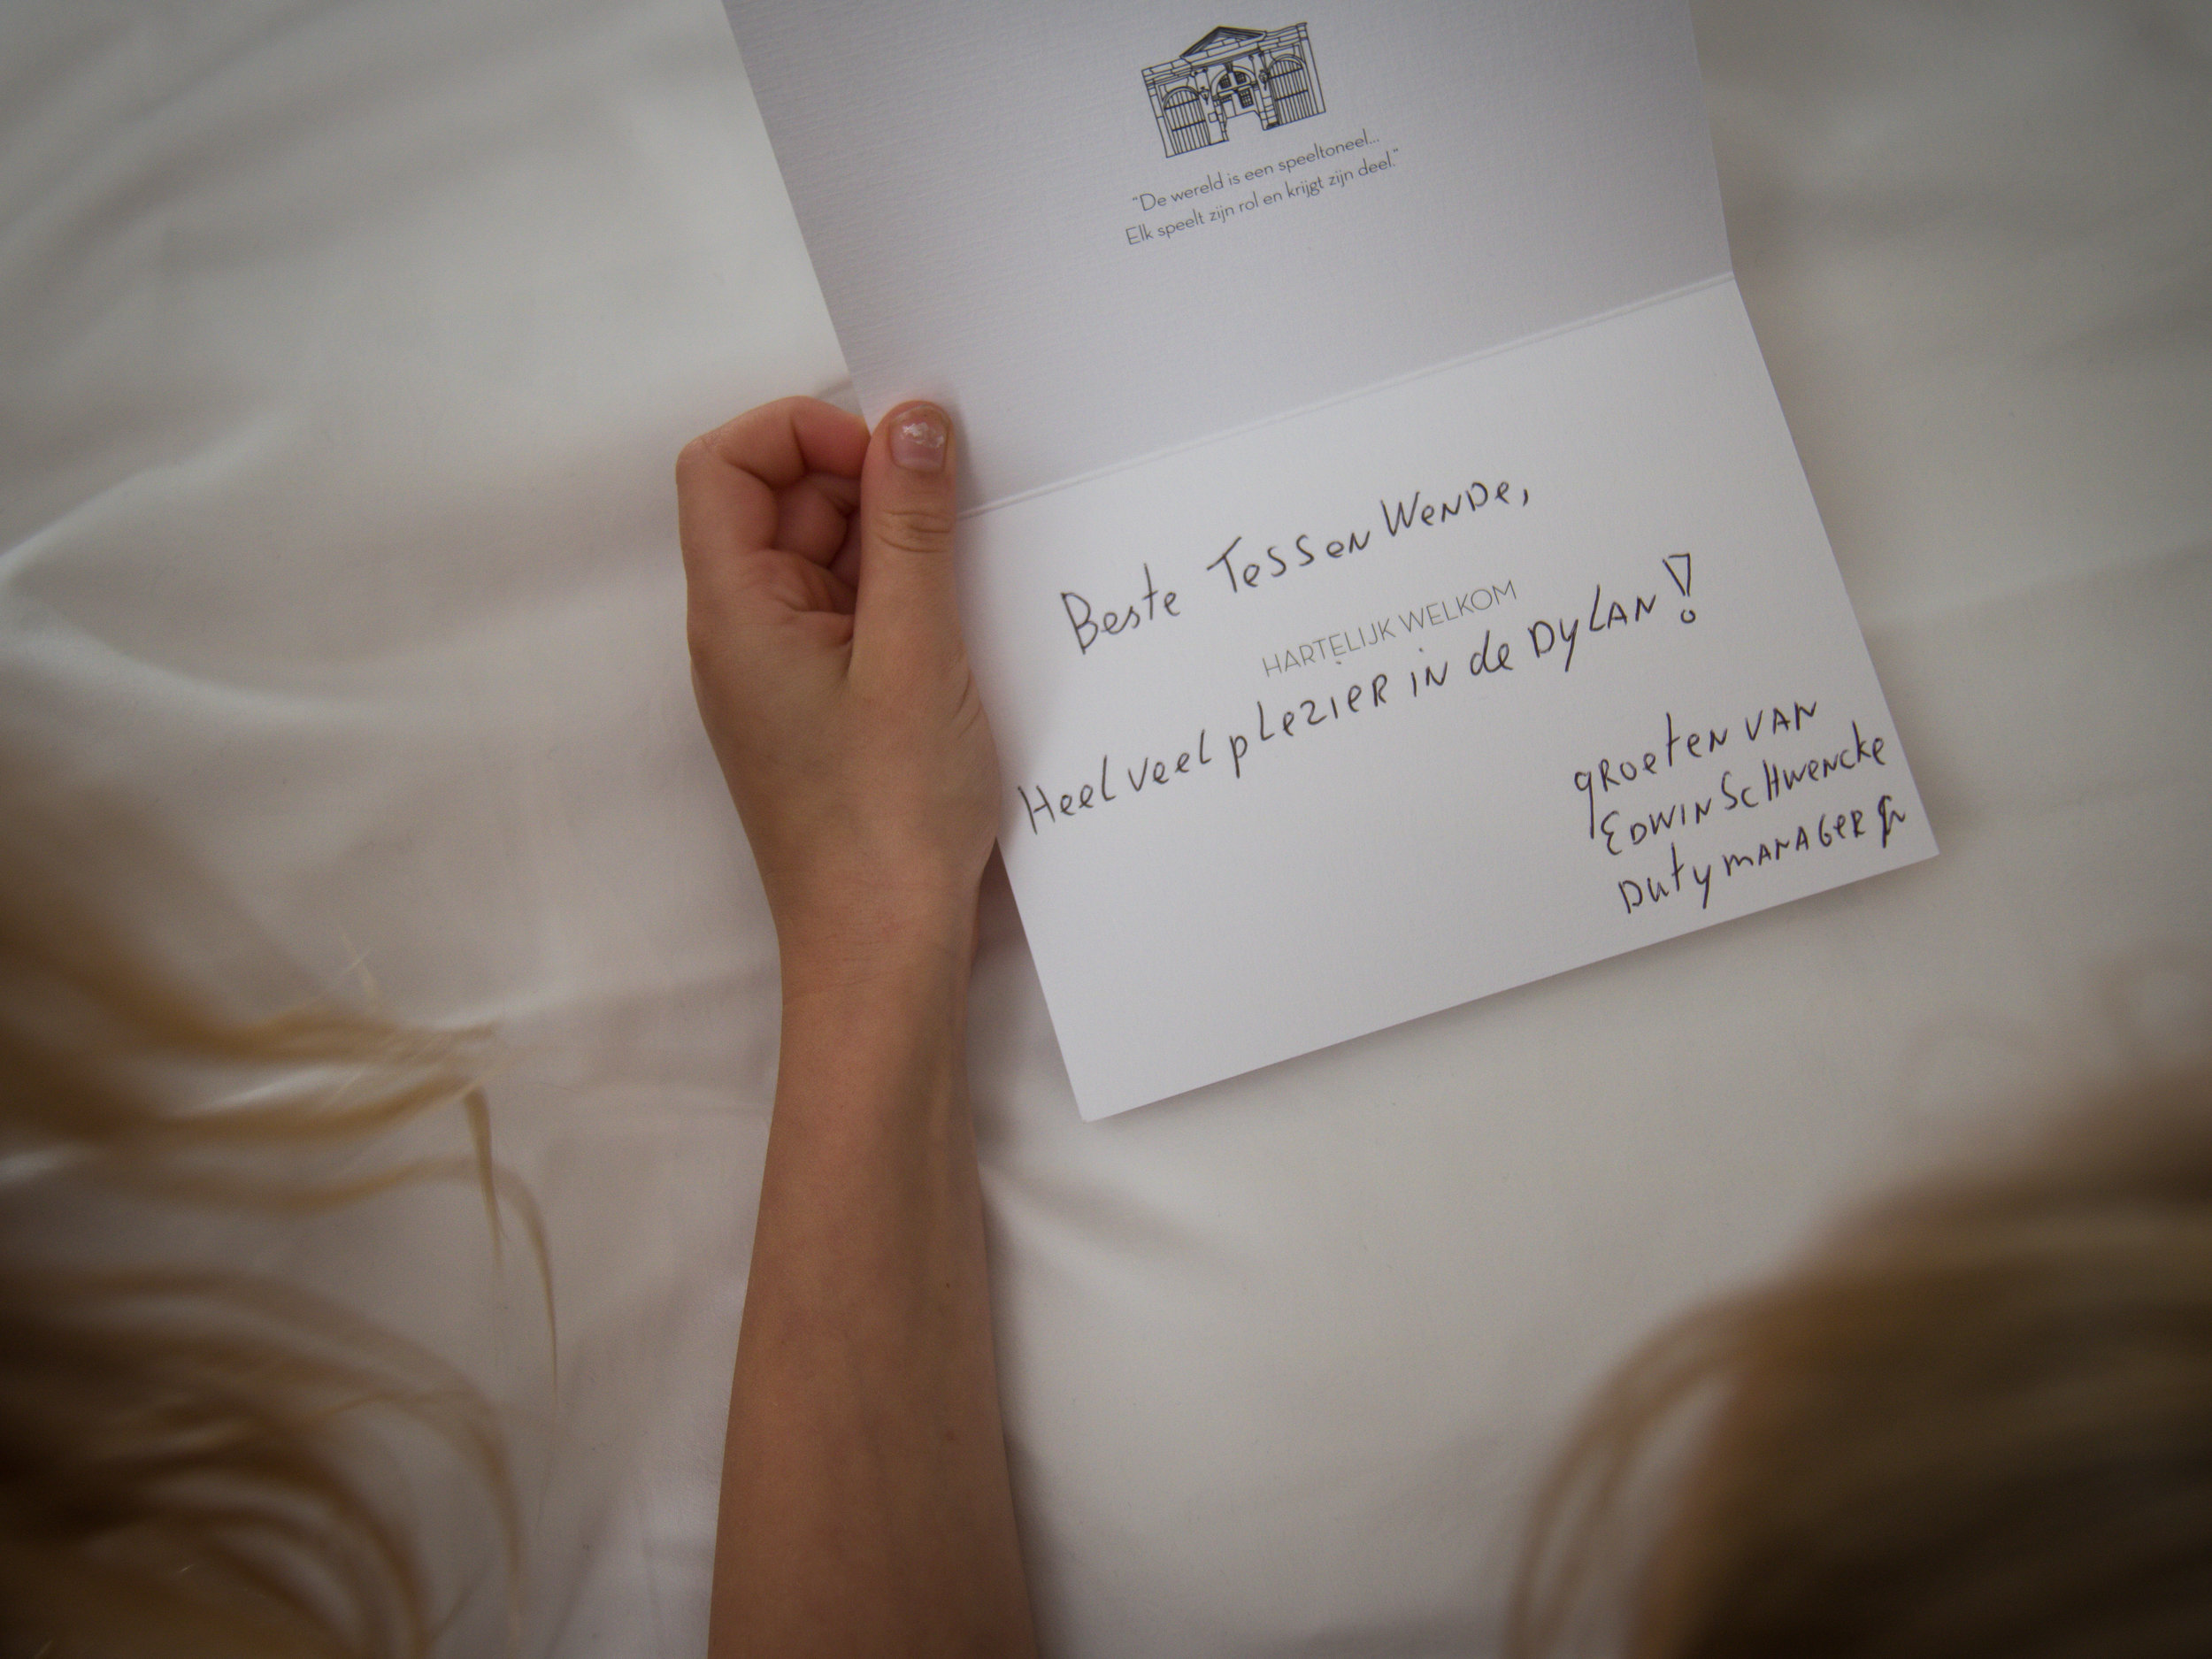 "De wereld is een speeltoneel...
Elk speelt zijn rol en krijgt zijn deel."
Beste Tess en Wende,
HARTELIJK WELKOM
Heel veel plezier in de Dylan!
groeten van
Edwin Schwencke
Duty manager